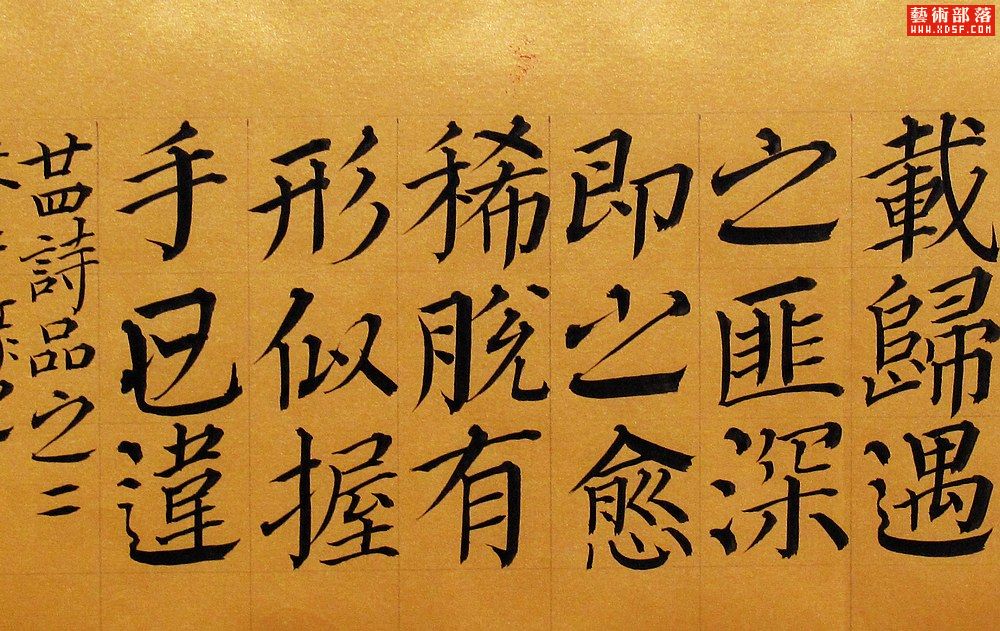 載歸遇
之匪深
即之愈
稀脫有
形似握
手已違
廿四詩品之二
藝術部落
WWW.XDSF.COM